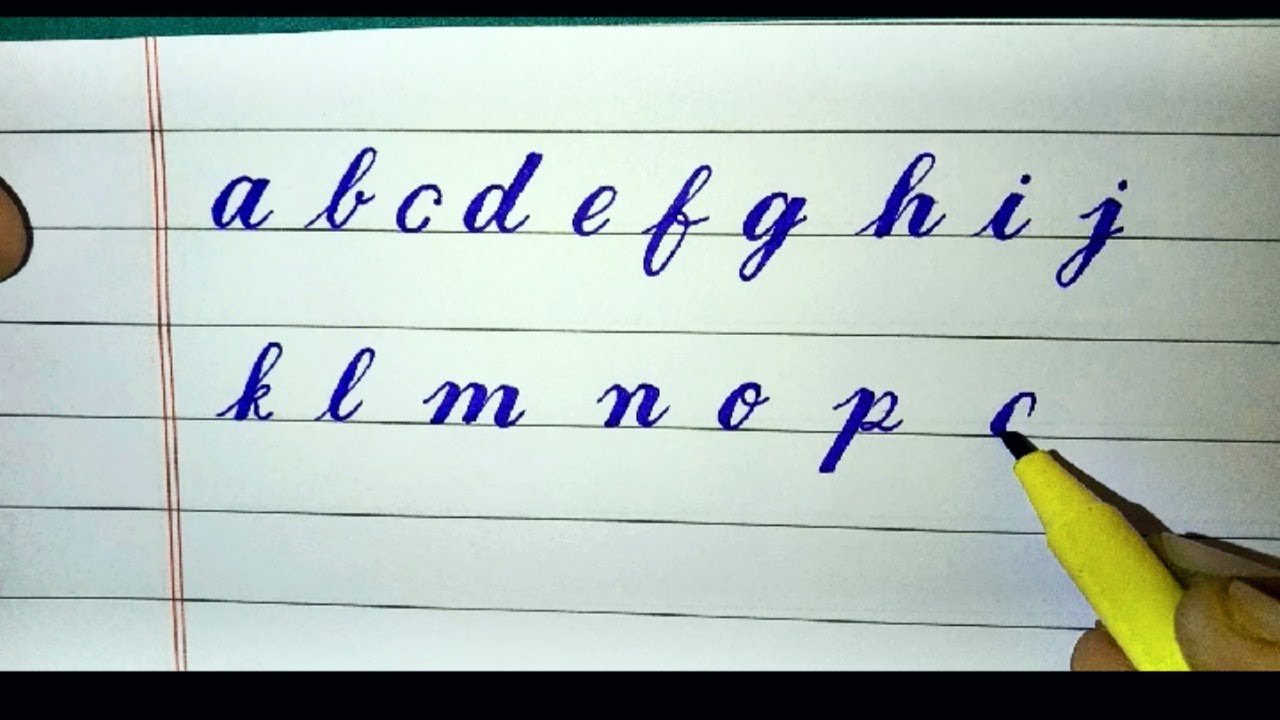 a b c d e f g h i j
k l m n o p c